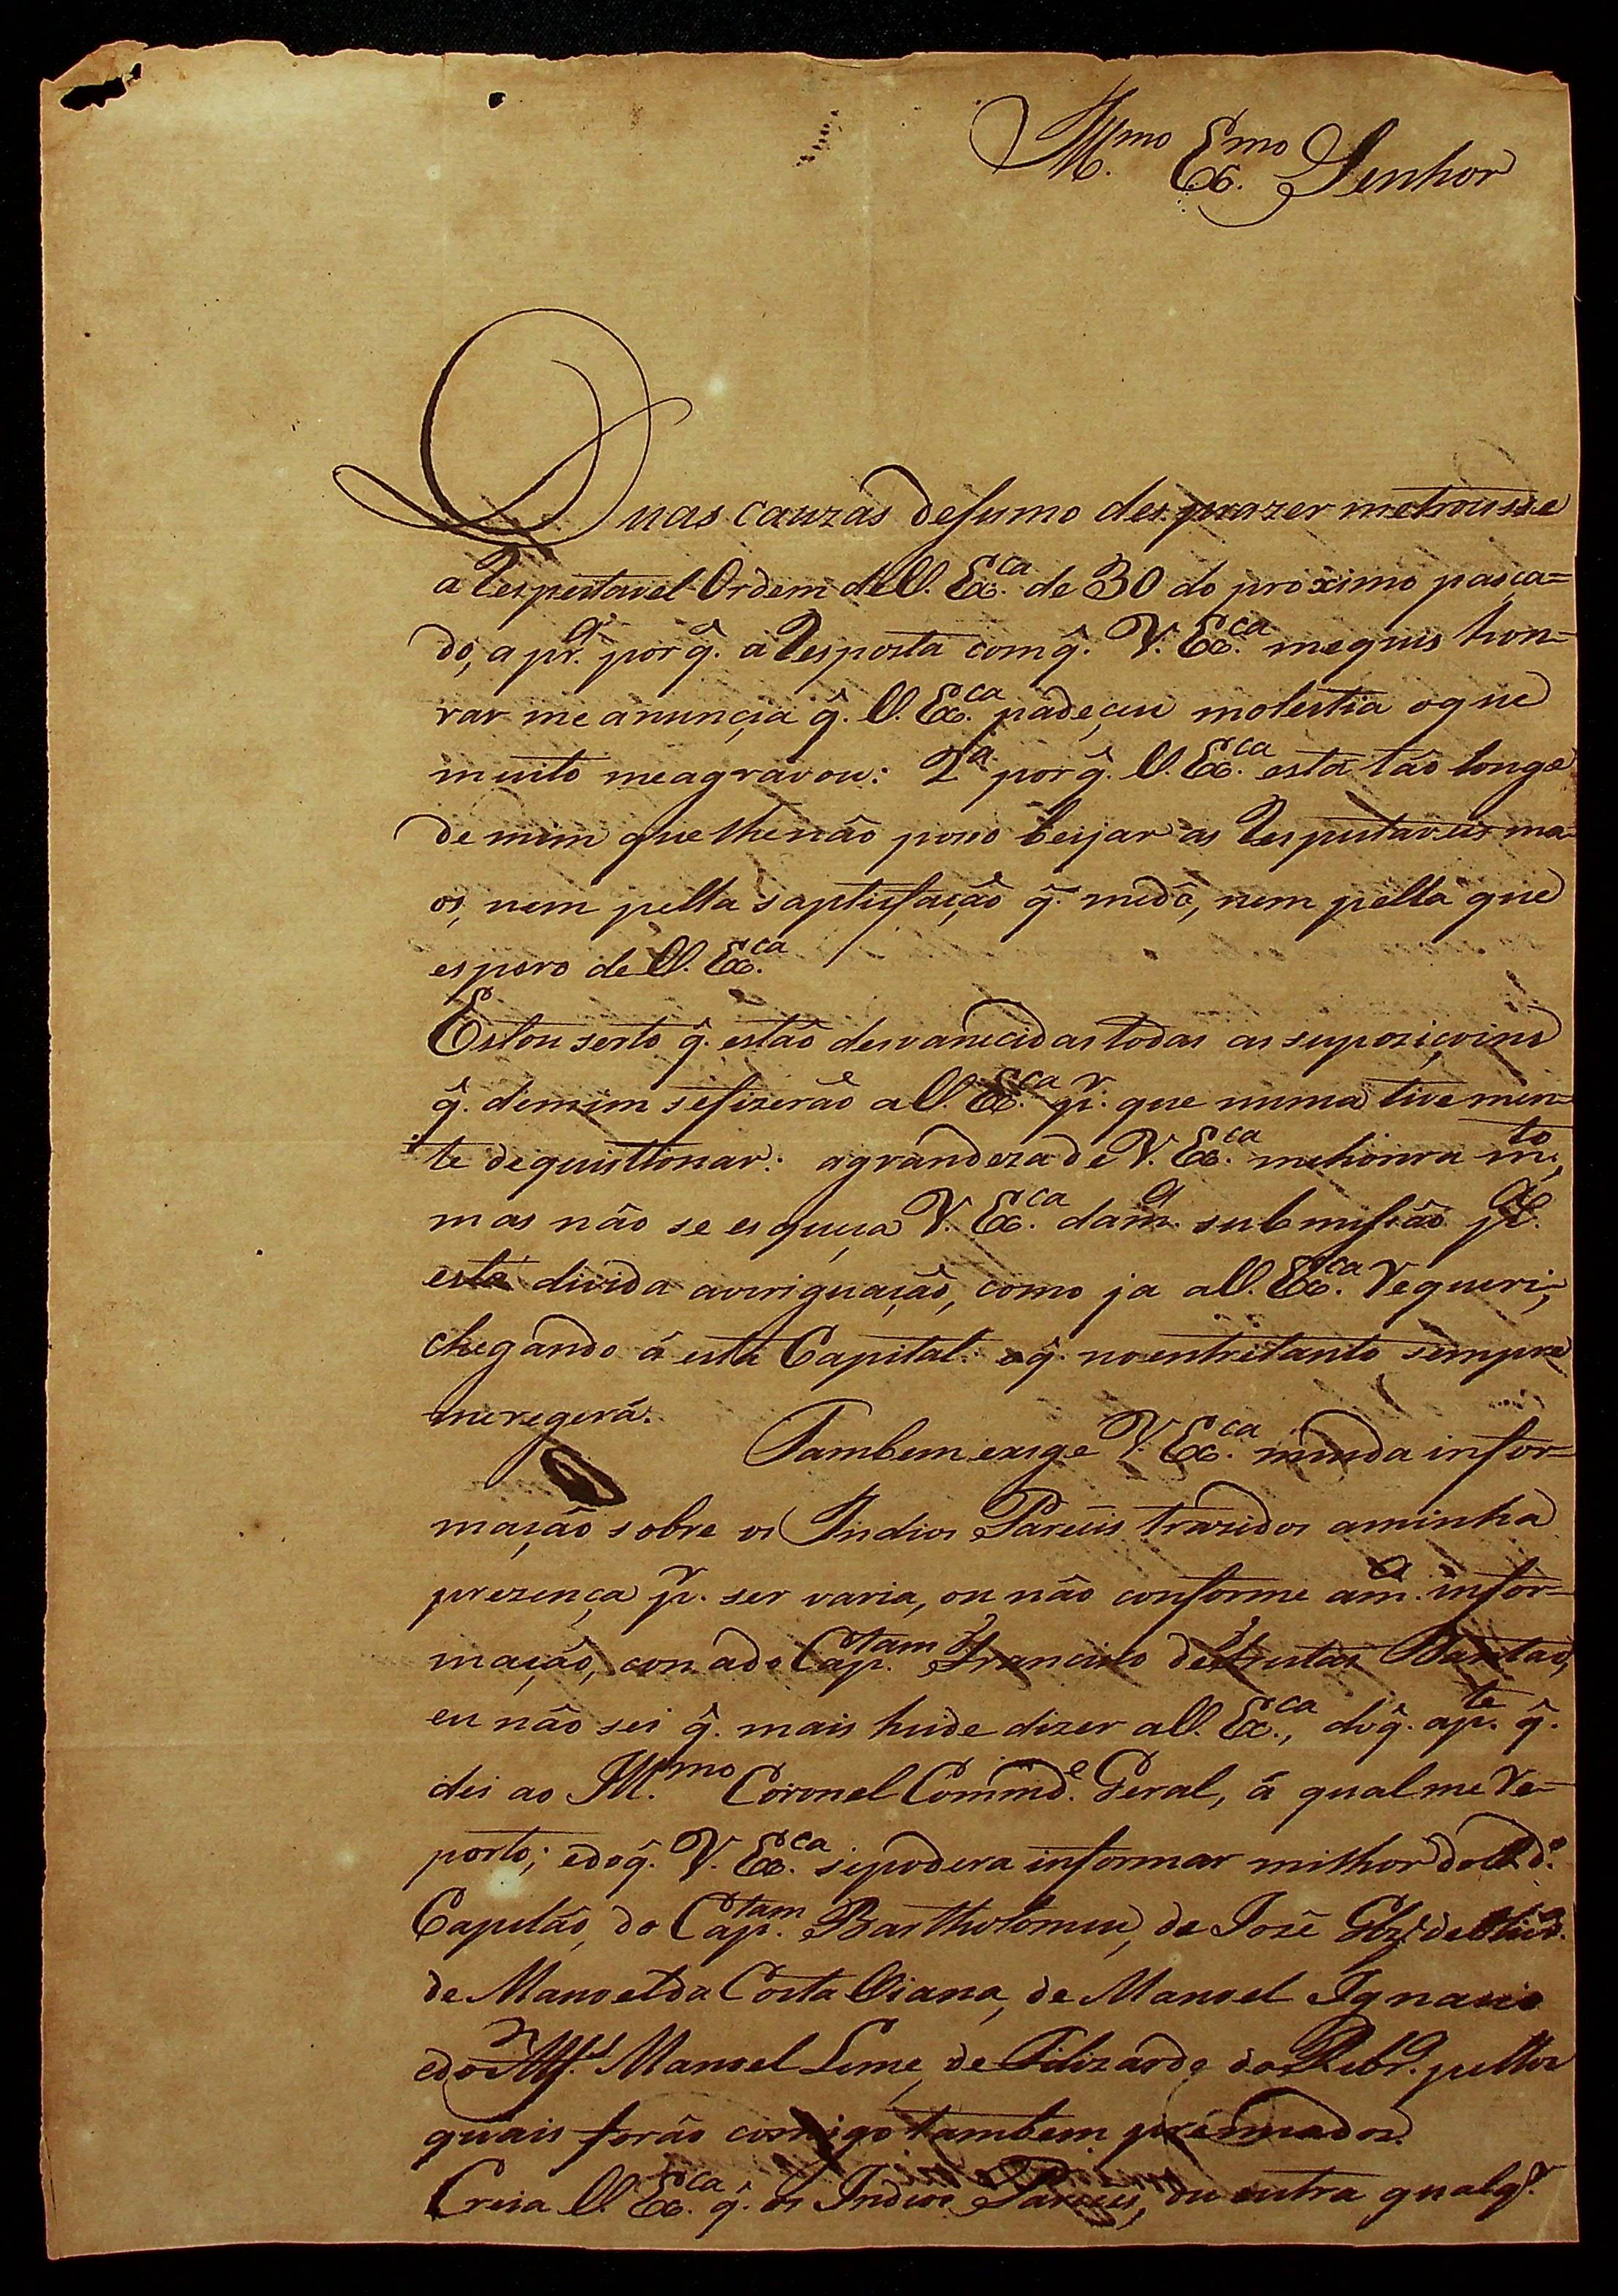 Ill.mo Ex.mo Senhor
Duas cauzas desumo desprazer metrousse
a Respeitavel Ordem de V. Ex.ca de 30 do proximo pasça=
do, a pr.a por q̂. a Resposta com q̂. V. Ex.ca mequis hon=
rar me anunçia q̂. V. Ex.ca padeçeu molestia oque
muito meagravou: 2.a por q̂. V. Ex.ca está tão longe
demim quelhenão poso beijar as Respeitaveis ma=
os, nem pella saptisfação q̂. medá, nem pella que
espero de V. Ex.ca
Estou serto q̂. estão desvanecidas todas as supoziçoins
q̂. demim sefizerão a V. Ex.ca pr. que nunca tive men=
te dequistionar: agrandeza de V. Ex.ca mehonra m.to,
mas não se esqueça V. Ex.ca dam.a submisão p.a
esta divida averiguação, como ja a V. Ex.ca Requeri,
chegando á esta Capital: e q̂. noentretanto sempre
meregerá.
Tambem exige V. Ex.ca minda infor=
mação sobre os Indios Parecis trazidos aminha
prezença pr. ser varia, ou não conforme am.a infor=
mação, com ado Cap.tam Francisco de Freitas
eu não sei q̂. mais heide dizer a V. Ex.ca, doq̂. ap.te q̂.
dei ao Ill.mo Coronel Command.e Geral, á qual me Re=
porto; edoq̂. V. Ex.ca sepodera informar milhor do d.o
Capitão, do Cap.tam Bartholomeu, de José Glz'
de Manoel da Costa Viana, de Manoel Ignacio
edo Manoel Leme, de Felizardo do Rib.o pellos
quais forão comigo tambem premiados.
Creia V. Ex.ca q̂. os Indios Parecis, ou outra qualq.r